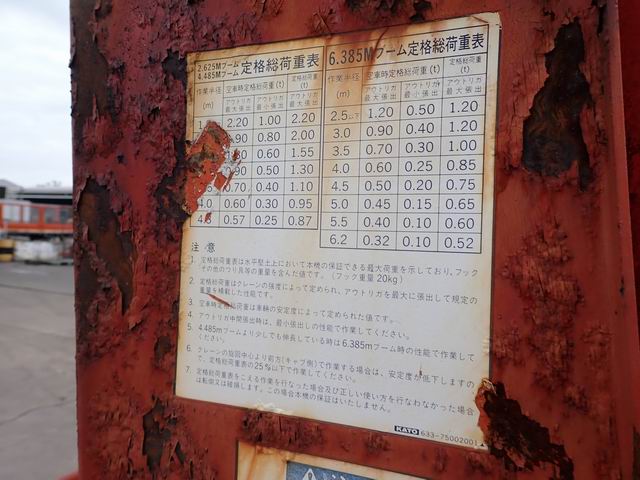 2.625Mブーム
4.485Mブーム 定格総荷重表
作業半径 (m) 空車時定格総荷重(t) 定格総荷重 (t)
アウトリガ最大張出 アウトリガ最小張出 アウトリガ最大張出
2.20 1.00 2.20
.90 0.80 2.00
.80 0.60 1.55
.90 0.50 1.30
0.70 0.40 1.10
4.0 0.60 0.30 0.95
0.57 0.25 0.87
6.385Mブーム定格総荷重表
作業半径 (m) 空車時定格総荷重(t) 定格総荷重 (t)
アウトリガ最大張出 アウトリガ最小張出 アウトリガ最大張出
2.5以下 1.20 0.50 1.20
3.0 0.90 0.40 1.20
3.5 0.70 0.30 1.00
4.0 0.60 0.25 0.85
4.5 0.50 0.20 0.75
5.0 0.45 0.15 0.65
5.5 0.40 0.10 0.60
6.2 0.32 0.10 0.52
注 意
1. 定格総荷重表は水平堅土上において本機の保証できる最大荷重を示しており、フック
その他のつり具等の重量を含んだ値です。(フック重量 20kg)
2. 定格総荷重はクレーンの強度によって定められ、アウトリガを最大に張出して規定の
重量を積載した性能です。
3. 空車時定格総荷重は車輛の安定度によって定められた値です。
4. アウトリガ中間張出時は、最小張出しの性能で作業してください。
5. 4.485mブームより少しでも伸長している時は6.385mブーム時の性能で作業して
ください。
6. クレーンの旋回中心より前方(キャブ側)で作業する場合は、安定度が低下しますの
で、定格総荷重表の25%以下で作業してください。
7. 定格総荷重表をこえる作業を行なった場合及び正しい使い方を行なわなかった場合
は転倒又は破損します。この場合本機の保証はいたしません。
KATO 633-75002001